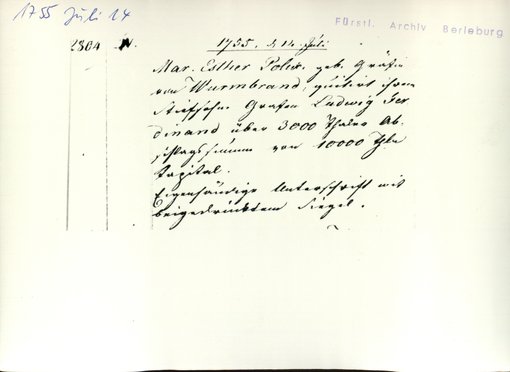 1755 Juli 14
Fürstl. Archiv Berleburg
2804 N. 1755. d 14. Juli
Mar. Esther Polix. geb. Gräfin
von Wurmbrand, quitirt ihrem
Stiefsohn Grafen Ludwig Fer
dinand über 3000 Thaler Ab-
schlagssumme von 10000 Thlr
Capital.
Eigenhändige Unterschrift mit
beigedrücktem Siegel.